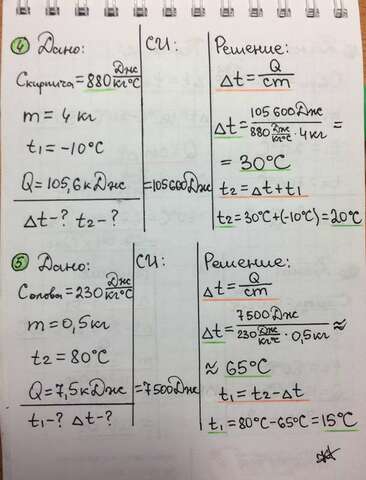 4 Дано:
Cкирпича = 880 Дж/кг°C
m = 4 кг
t₁ = -10°C
Q = 105,6 кДж
Δt - ? t₂ - ?
СИ:
= 105600Дж
Решение:
Δt = Q/cm
Δt = 105600Дж/(880 Дж/кг°C · 4кг) =
= 30°C
t₂ = Δt + t₁
t₂ = 30°C + (-10°C) = 20°C
5 Дано:
Cолова = 230 Дж/кг°C
m = 0,5 кг
t₂ = 80°C
Q = 7,5 кДж
t₁ - ? Δt - ?
СИ:
= 7500Дж
Решение:
Δt = Q/cm
Δt = 7500Дж/(230 Дж/кг°C · 0,5кг) ≈
≈ 65°C
t₁ = t₂ - Δt
t₁ = 80°C - 65°C = 15°C